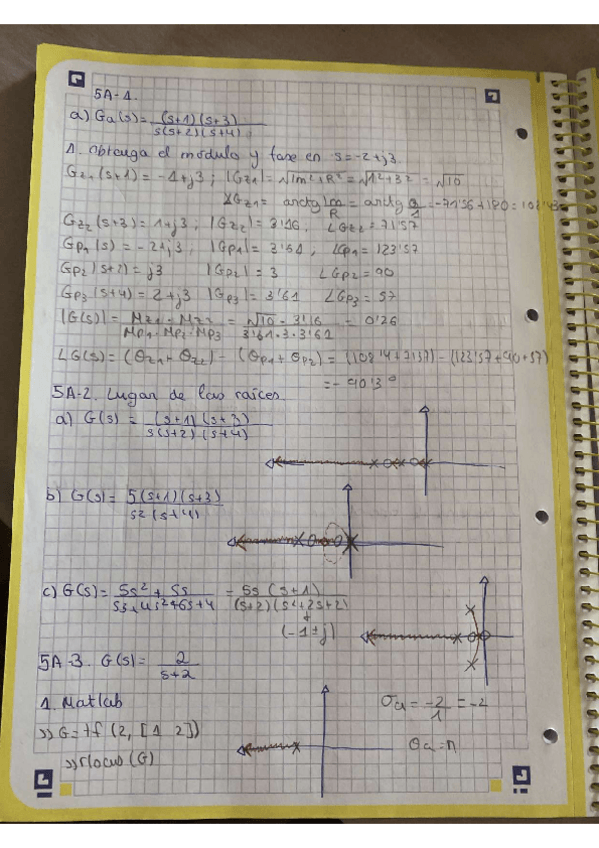 5A-1.
a) Ga(s) = (s+1)(s+3) / s(s+2)(s+4)
1. Obtenga el módulo y fase en s=-2+j3
Gz1(s+1) = -1+j3 ; |Gz1| = √Im²+R² = √1²+3² = √10
∠Gz1 = arctg Im/R = arctg = -71'56 + 180 = 108'43
Gz2(s+3) = 1+j3 ; |Gz2| = 3'16, ∠Gz2 = 71'57
Gp1(s) = -2+j3, |Gp1| = 3'61, ∠Gp1 = 123'57
Gp2(s+2) = j3 |Gp2| = 3 ∠Gp2 = 90
Gp3(s+4) = 2+j3 |Gp3| = 3'61 ∠Gp3 = 57
|G(s)| = Mz1·Mz2 / Mp1·Mp2·Mp3 = √10·3'16 / 3'61·3·3'61 = 0'26
∠G(s) = (θz1+θz2) - (θp1+θp2) = (108'4+71'57) - (123'57+90+57)
= -90'3°
5A-2. Lugar de las raíces.
a) G(s) = (s+1)(s+3) / s(s+2)(s+4)
b) G(s) = 5(s+1)(s+3) / s2(s+4)
c) G(s) = 5s²+5s / s3+4s²+6s+4 = 5s(s+1) / (s+2)(s²+2s+2)
(-1±j)
5A-3. G(s) = 2 / s+2
1. Matlab σa = -2/1 = -2
>> G=tf(2,[1 2])
θa = π
>> rlocus(G)